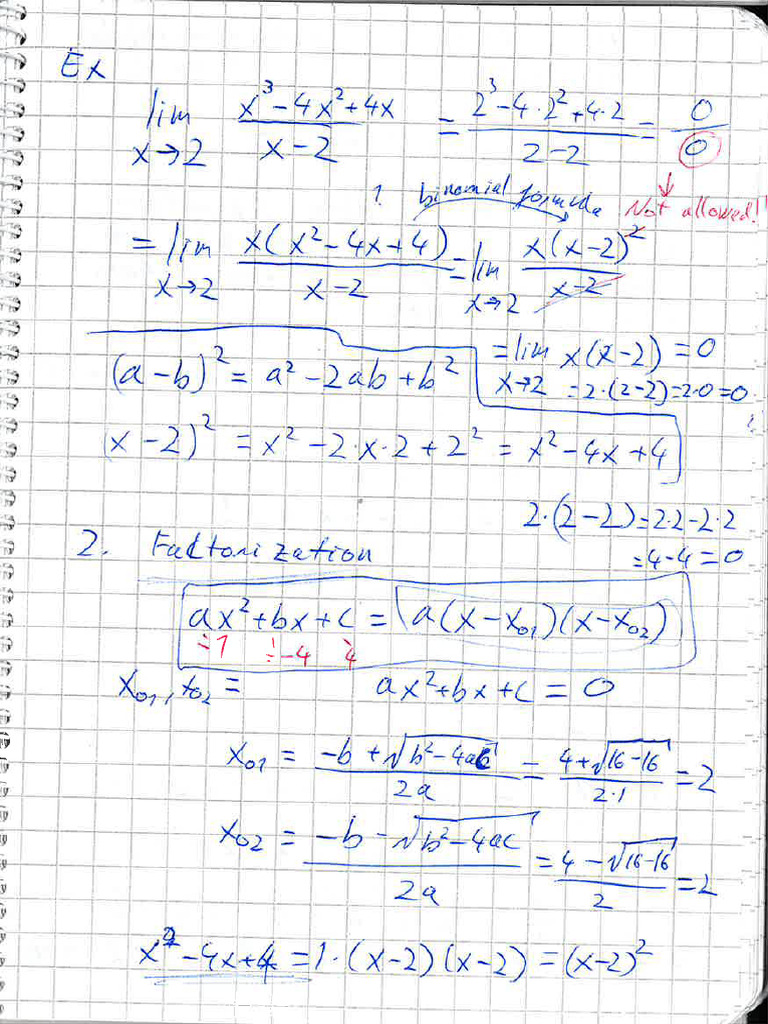 Ex
lim x→2 (x³ - 4x² + 4x)/(x - 2) = (2³ - 4·2² + 4·2)/(2 - 2) = 0/0
1. binomial formula Not allowed!!
= lim x→2 x(x² - 4x + 4)/(x - 2) = lim x→2 x(x - 2)²/(x - 2)
= lim x→2 x(x - 2) = 0
= 2·(2 - 2) = 2·0 = 0
(a - b)² = a² - 2ab + b²
(x - 2)² = x² - 2·x·2 + 2² = x² - 4x + 4
2·(2 - 2) = 2·2 - 2·2
= 4 - 4 = 0
2. Factorization
ax² + bx + c = a(x - x₀₁)(x - x₀₂)
=1 =-4 4
x₀₁, x₀₂ = ax² + bx + c = 0
x₀₁ = (-b + √(b² - 4ac))/(2a) = (4 + √(16 - 16))/(2·1) = 2
x₀₂ = (-b - √(b² - 4ac))/(2a) = (4 - √(16 - 16))/2 = 2
x² - 4x + 4 = 1·(x - 2)(x - 2) = (x - 2)²